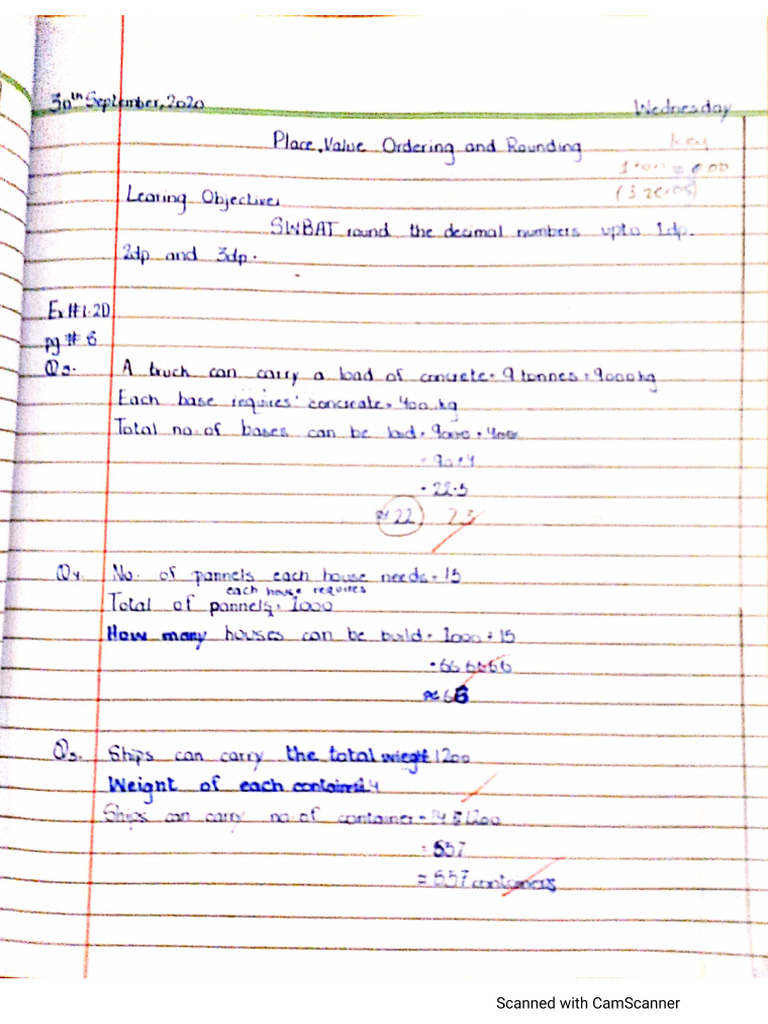 30th September, 2020 Wednesday
Place, Value Ordering and Rounding key
1 ton =
Learing Objective,
SWBAT round the decimal numbers upto 1dp.
2dp and 3dp.
Ex#1.2D
pg # 6
Q3. A truck can carry a load of concrete = 9 tonnes = 9000kg
Each base requires concreate = 400 kg
Total no. of bases can be laid = 9000 ÷ 400
= 90 ÷ 4
= 22.5
≈ 22 23
Q4. No. of pannels each house needs = 15
each house requires
Total of pannels = 1000
How many houses can be build = 1000 ÷ 15
= 66.6666
≈ 66
Q5. Ships can carry the total 1200
Weight of each
Ships can carry no of container =
= 557
= 557 containers
Scanned with CamScanner